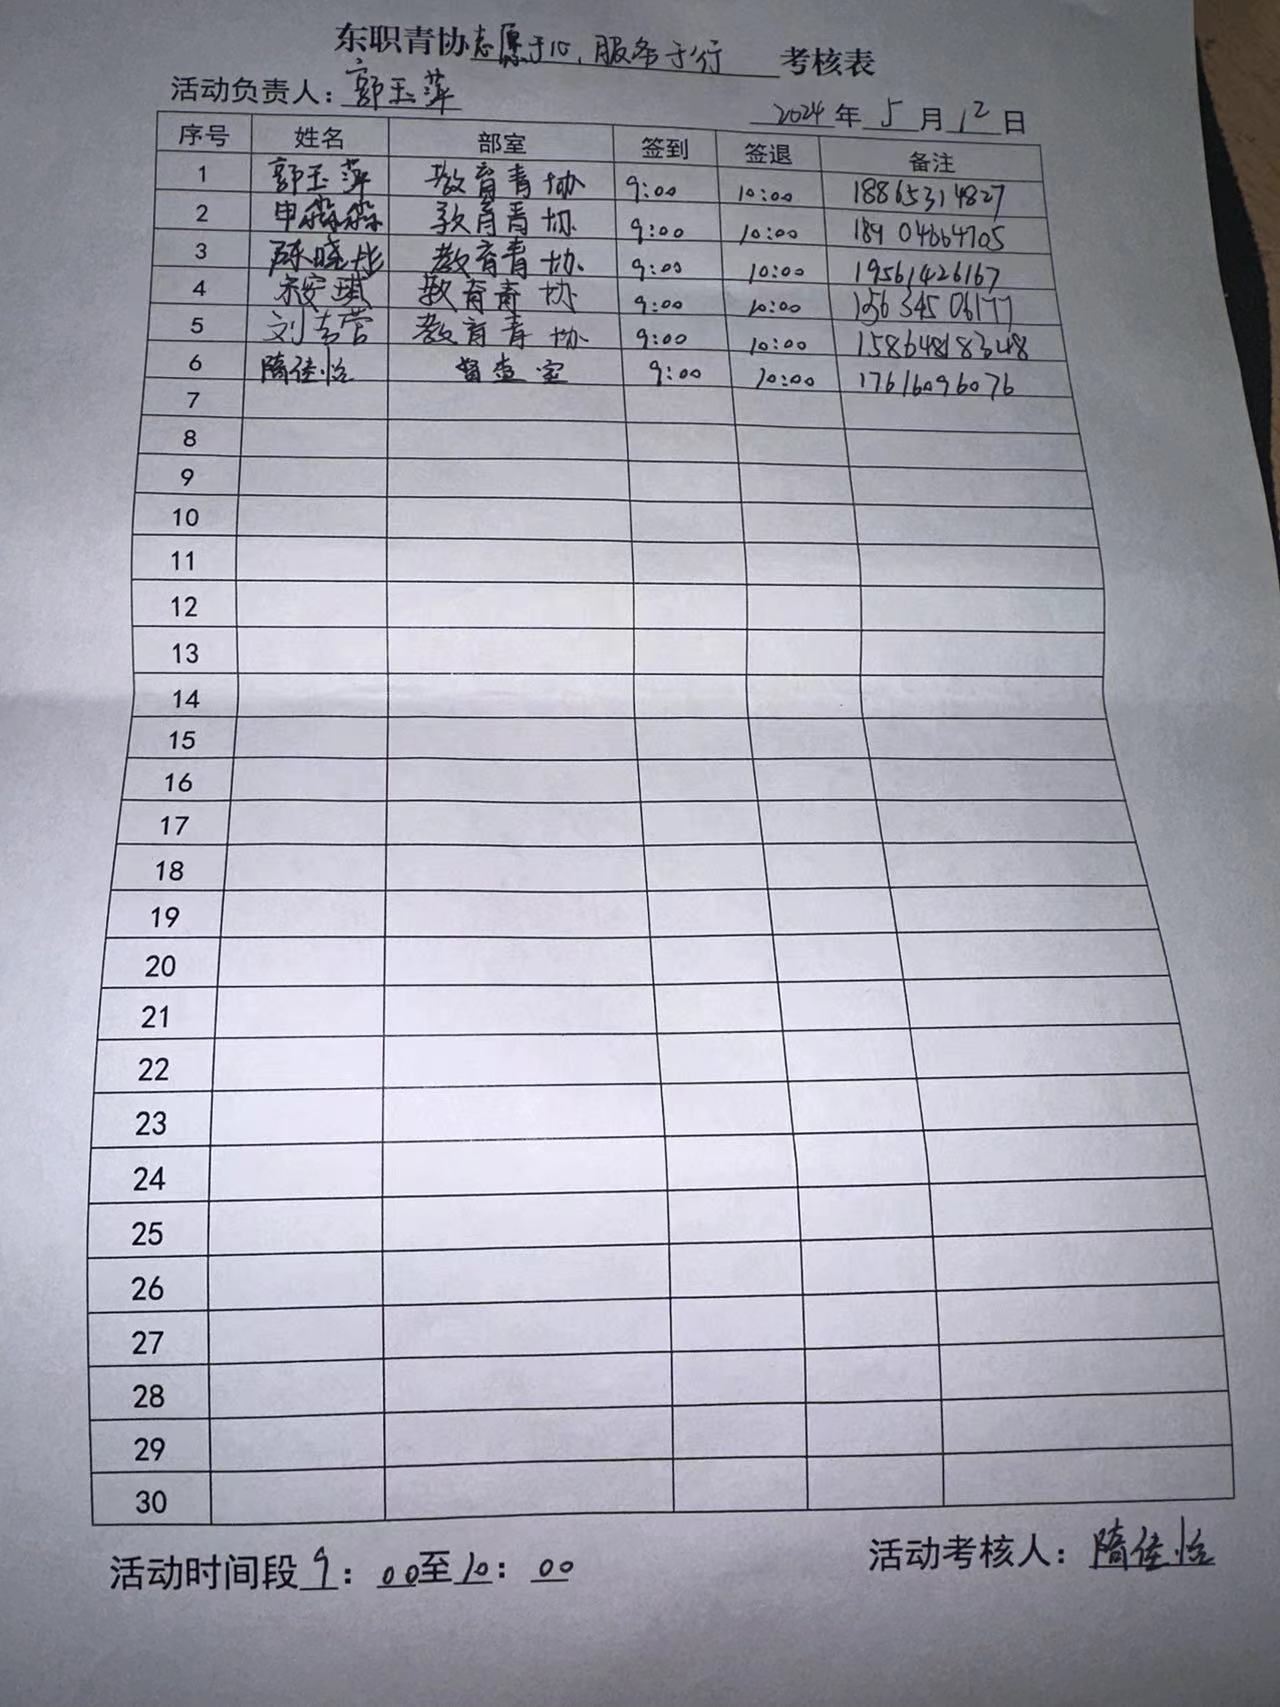 东职青协志愿于心，服务于行 考核表
活动负责人：郭玉萍
2024 年 5 月 12 日
序号 姓名 部室 签到 签退 备注
1 郭玉萍 教育青协 9:00 10:00 18865314827
2 申淼淼 教育青协 9:00 10:00 18904664705
3 陈晓彤 教育青协 9:00 10:00 19561426167
4 宋安琪 教育青协 9:00 10:00 15634506177
5 刘吉营 教育青协 9:00 10:00
6 隋佳怡 督查室 9:00 10:00 17616096076
7
8
9
10
11
12
13
14
15
16
17
18
19
20
21
22
23
24
25
26
27
28
29
30
活动时间段 9：00至10：00
活动考核人：隋佳怡